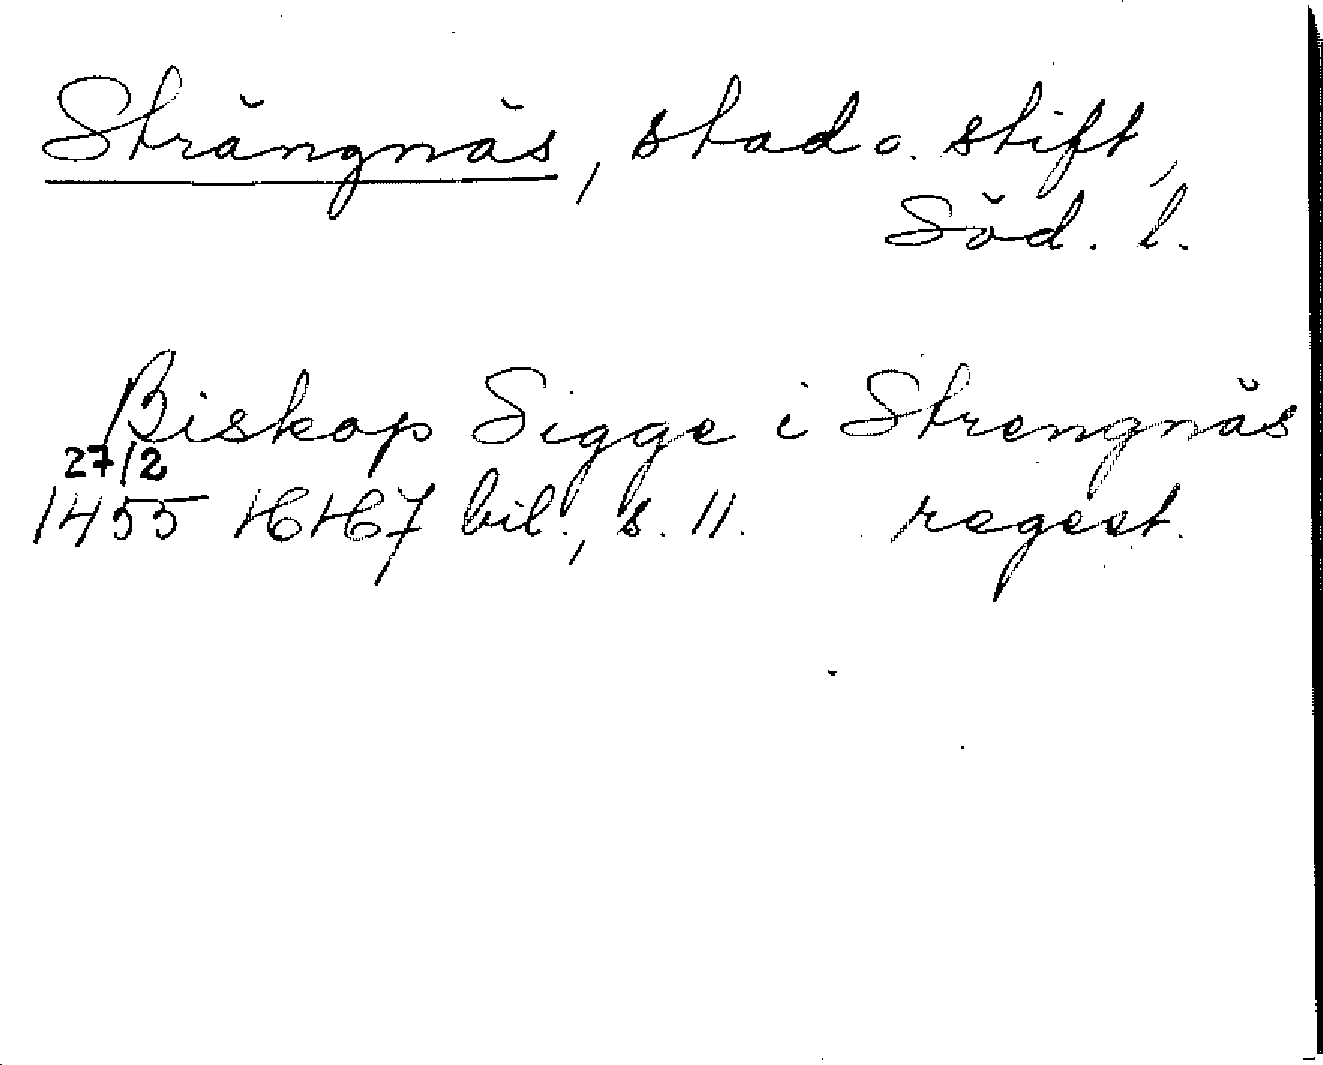 Strängnäs, stad o. stift,
Söd. l.
Biskop Sigge i Strengnäs
27/2
1455 HH7 bil., s. 11. regest.